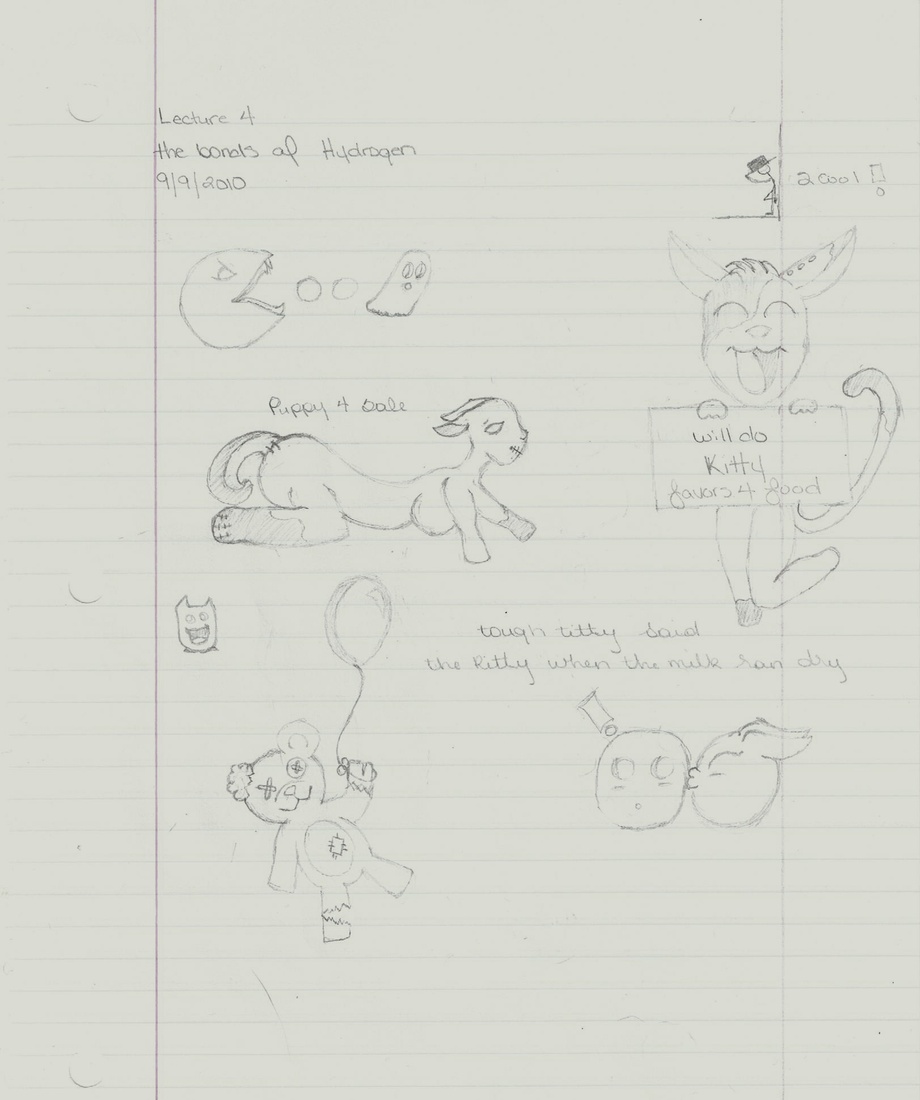 Lecture 4
the bonds of Hydrogen
9/9/2010
2 cool
Puppy 4 Sale
will do
Kitty
favors 4 food
tough titty said
the Kitty when the milk ran dry